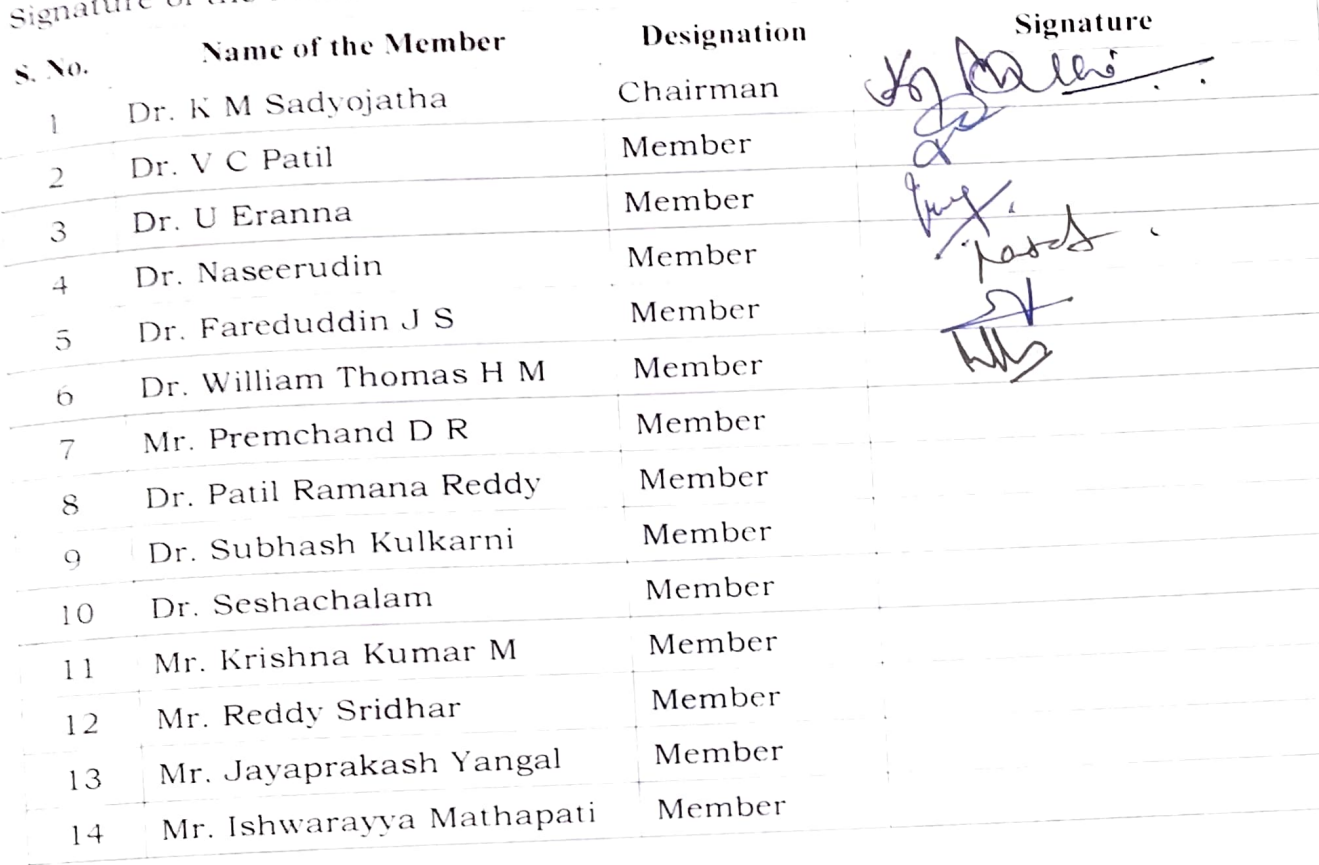 Signature of the
S. No. Name of the Member Designation Signature
1 Dr. K M Sadyojatha Chairman
2 Dr. V C Patil Member
3 Dr. U Eranna Member
4 Dr. Naseerudin Member
5 Dr. Fareduddin J S Member
6 Dr. William Thomas H M Member
7 Mr. Premchand D R Member
8 Dr. Patil Ramana Reddy Member
9 Dr. Subhash Kulkarni Member
10 Dr. Seshachalam Member
11 Mr. Krishna Kumar M Member
12 Mr. Reddy Sridhar Member
13 Mr. Jayaprakash Yangal Member
14 Mr. Ishwarayya Mathapati Member